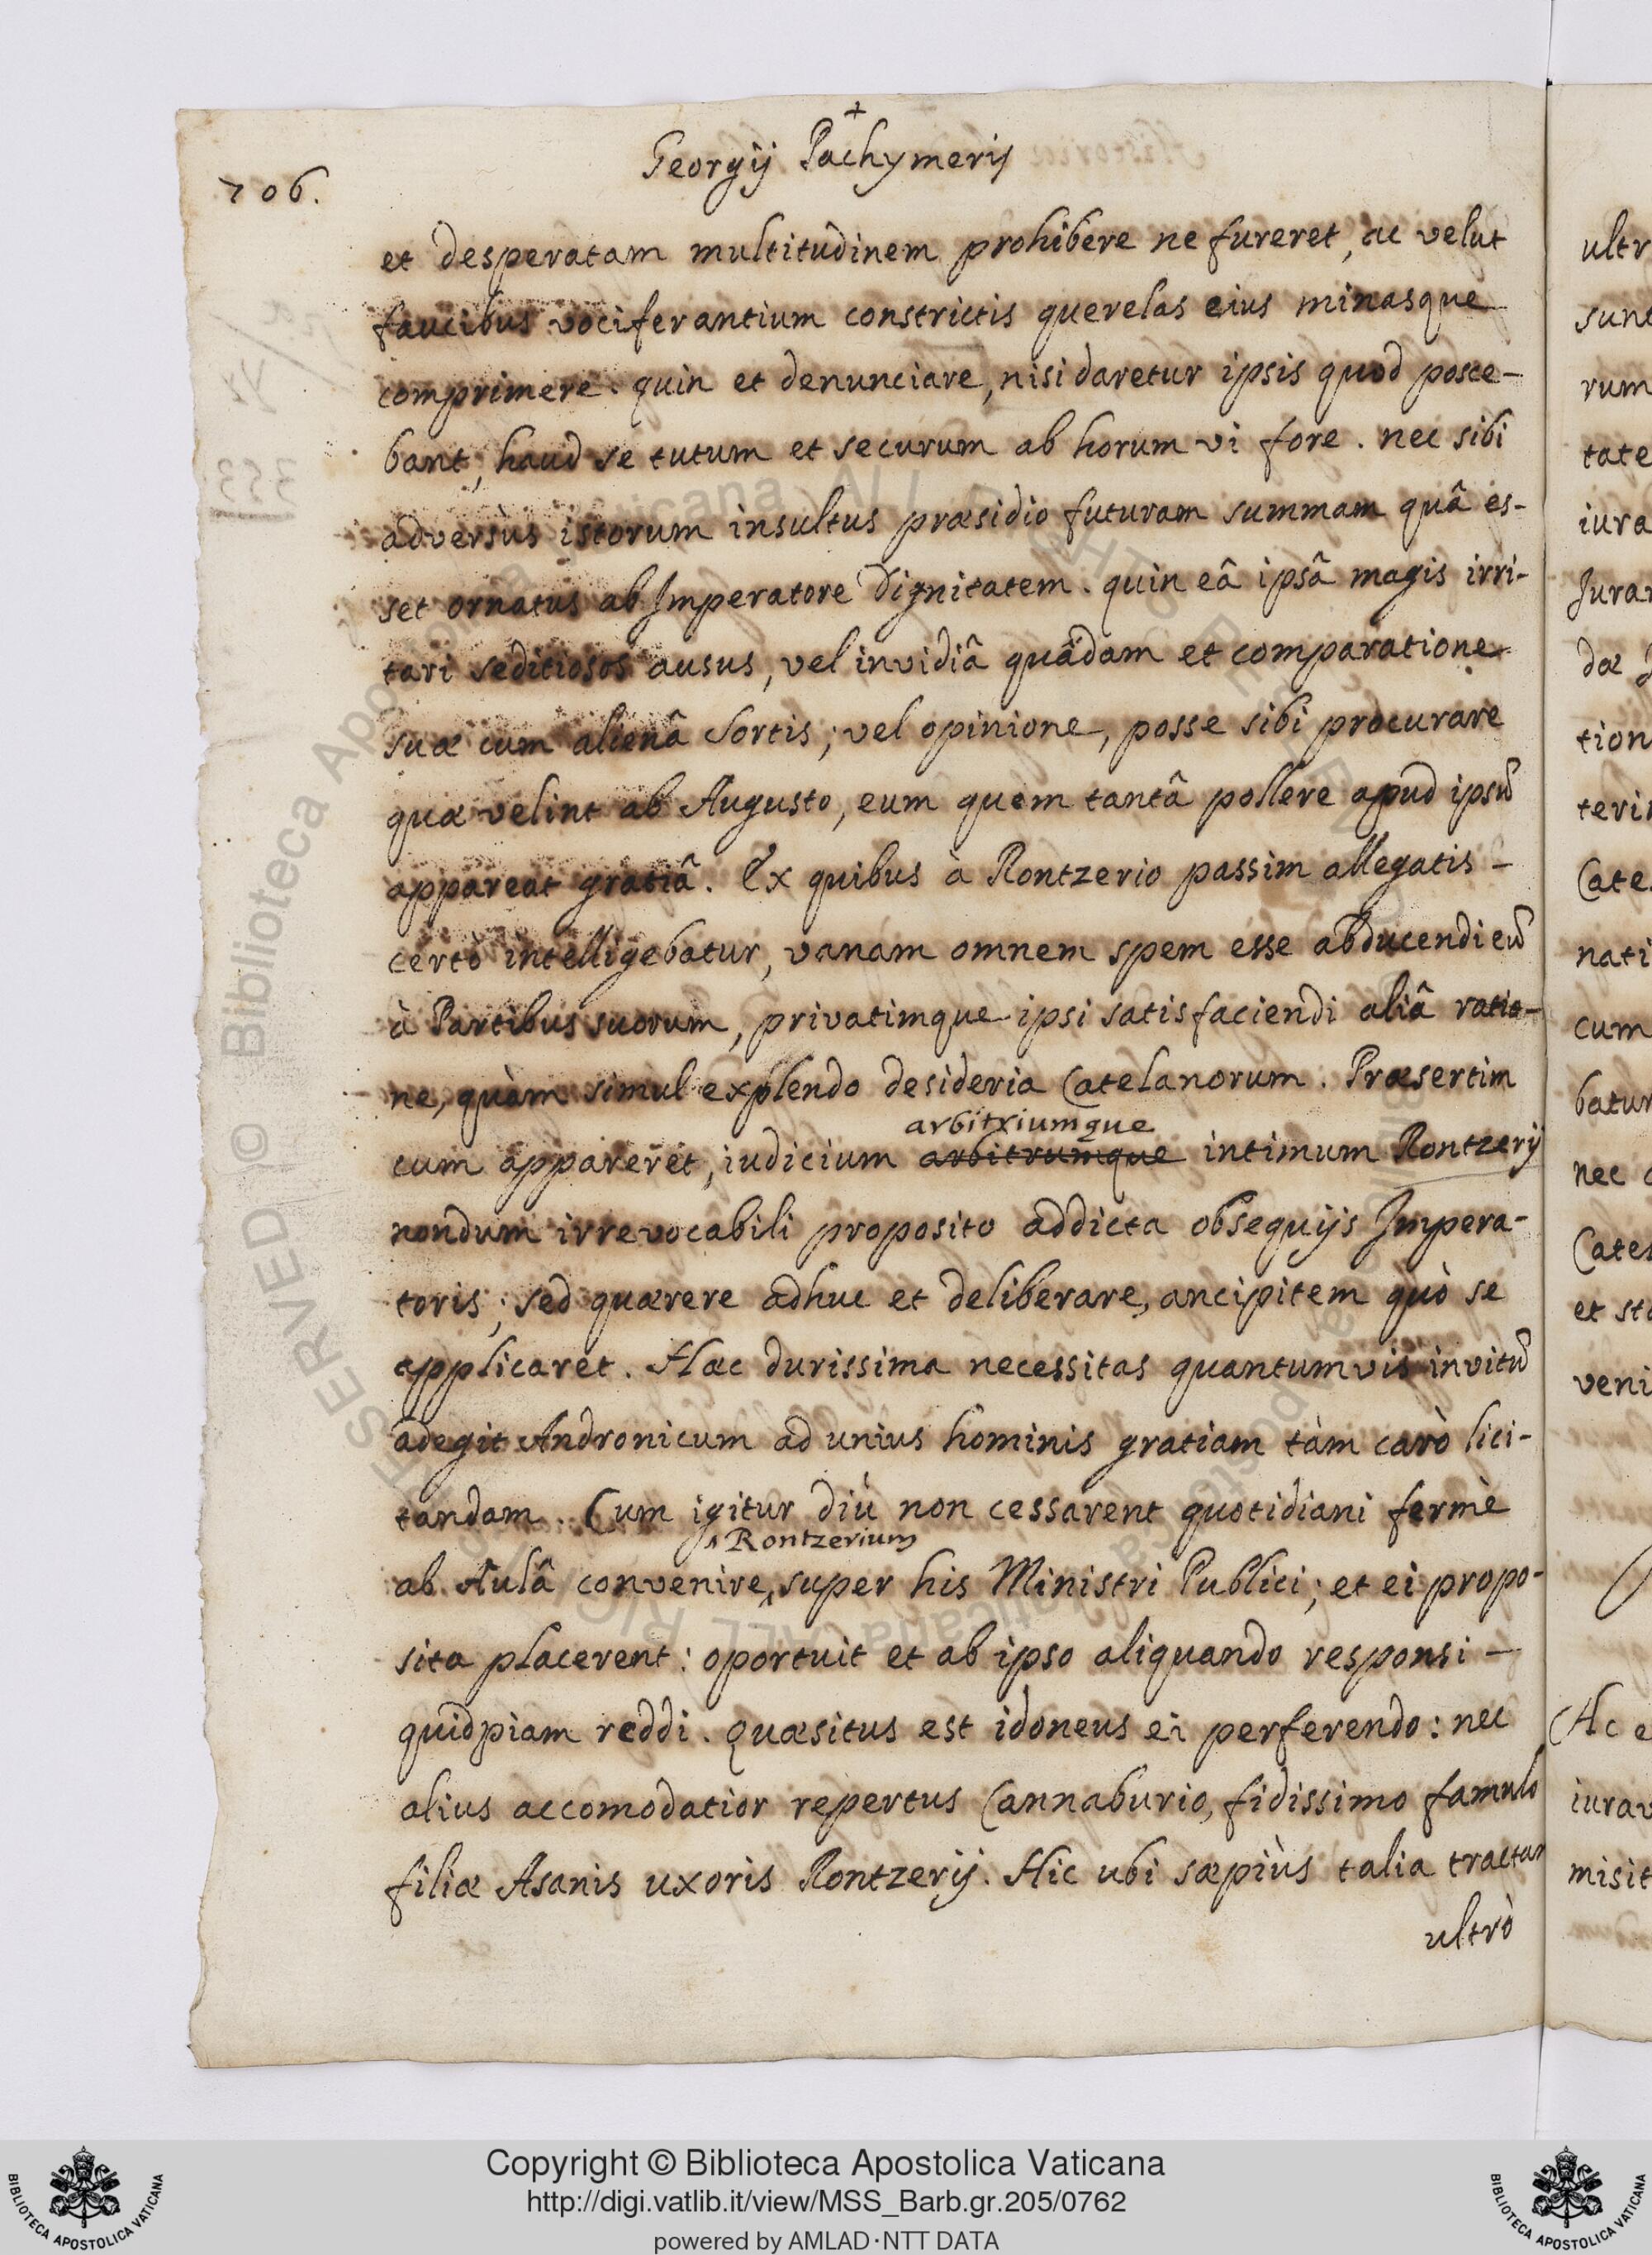 +
Georgij Pachymerij
706.
et desperatam multitudinem prohibere ne fureret, ac velut
faucibus vociferantium constrictis querelas eius minasque
comprimere. quin et denunciare, nisi daretur ipsis quod posce-
bant, haud se tutum et securum ab horum vi fore. nec sibi
adversùs istorum insultus præsidio futuram summam quâ es-
set ornatus ab Imperatore Dignitatem. quin eâ ipsâ magis irri-
tari seditiosos ausus, vel invidiâ quâdam et comparatione
suæ cum alienâ Sortis; vel opinione, posse sibi procurare
quæ velint ab Augusto, eum quem tantâ pollere apud ipsū
appareat gratiâ. Ex quibus à Rontzerio passim allegatis -
certò intelligebatur, vanam omnem spem esse abducendi eū
à Partibus suorum, privatimque ipsi satisfaciendi aliâ ratio-
ne, quàm simul explendo desideria Catelanorum. Præsertim
arbitriumque
cum appareret, iudicium arbitrumque intimum Rontzerij
nondum irrevocabili proposito addicta obsequijs Impera-
toris; sed quærere adhuc et deliberare, ancipitem quò se
applicaret. Hæc durissima necessitas quantumvis invitū
adegit Andronicum ad unius hominis gratiam tàm carò lici-
tandam. Cum igitur diù non cessarent quotidiani fermè
Rontzerium
ab Aulâ convenire, super his Ministri Publici; et ei propo-
sita placerent: oportuit et ab ipso aliquando responsi -
quidpiam reddi. Quæsitus est idoneus ei perferendo: nec
alius accomodatior repertus Cannaburio, fidissimo famulo
filiæ Asanis uxoris Rontzerij. Hic ubi sæpiùs talia tractan
ultrò
ultr
sunt
rum
tate
iura
Juran
dæ
tion
terin
Cate
nati
cum
batur
nec
Cate
et sta
veni
Ac e
iurav
misit
Copyright © Biblioteca Apostolica Vaticana
http://digi.vatlib.it/view/MSS_Barb.gr.205/0762
powered by AMLAD·NTT DATA
BIBLIOTECA APOSTOLICA VATICANA
BIBLIOTECA APOSTOLICA VATICANA